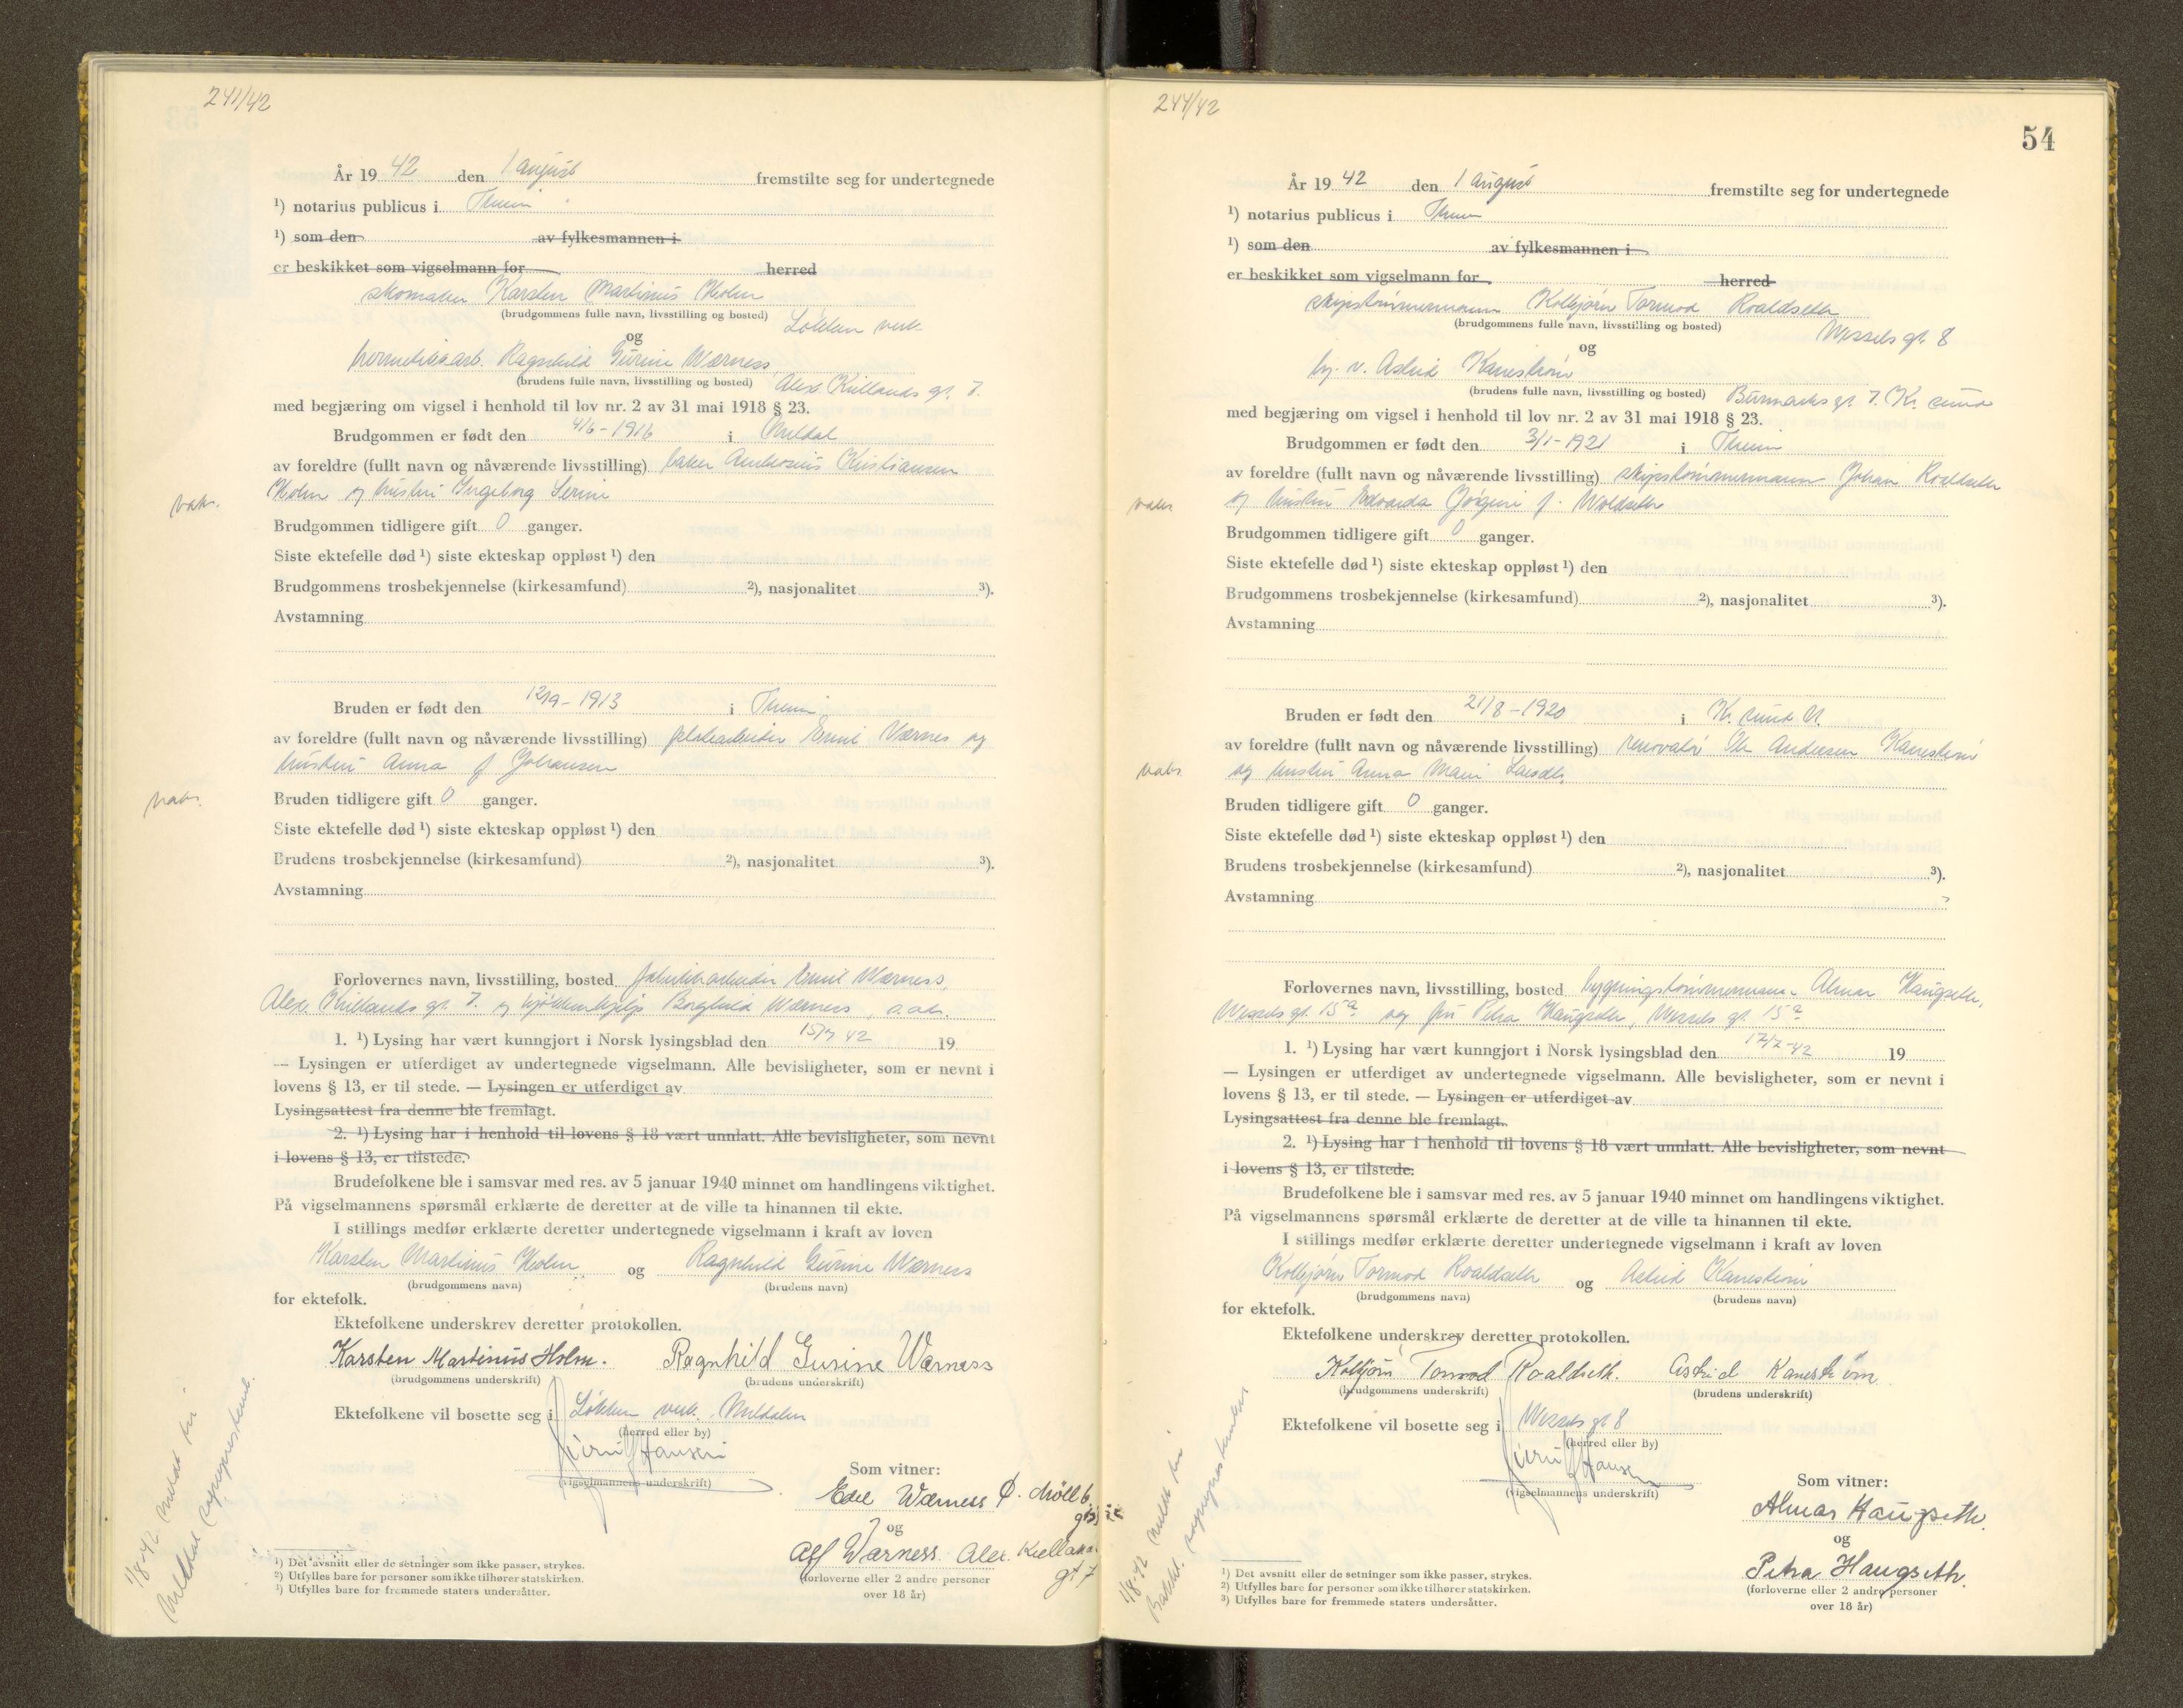 241/42
År 19 42 den 1 august fremstilte seg for undertegnede
¹) notarius publicus i Thjem
¹) som den av fylkesmannen i
er beskikket som vigselmann for herred
skomaker Karsten Martinus Holm
(brudgommens fulle navn, livsstilling og bosted) Løkken verk
og
hermetikkarb. Ragnhild Gurine Wærness
(brudens fulle navn, livsstilling og bosted) Alex. Kiellands gt. 7.
med begjæring om vigsel i henhold til lov nr. 2 av 31 mai 1918 § 23.
Brudgommen er født den 4/6-1916 i Meldal
av foreldre (fullt navn og nåværende livsstilling) baker Ambrosius Kristiansen
Holm og hustru Ingeborg Serine
vaks.
Brudgommen tidligere gift 0 ganger.
Siste ektefelle død ¹) siste ekteskap oppløst ¹) den
Brudgommens trosbekjennelse (kirkesamfund) ²), nasjonalitet ³).
Avstamning
Bruden er født den 12/9-1913 i
av foreldre (fullt navn og nåværende livsstilling) platearbeider Emil Værnes og
hustru Anna f Johansen
vaks.
Bruden tidligere gift 0 ganger.
Siste ektefelle død ¹) siste ekteskap oppløst ¹) den
Brudens trosbekjennelse (kirkesamfund) ²), nasjonalitet ³).
Avstamning
Forlovernes navn, livsstilling, bosted fabrikkarbeider Emil Wærness,
Alex. Kiellands gt. 7. og kjøkkenhjelp Borghild Wærness, s.ads.
1. ¹) Lysing har vært kunngjort i Norsk lysingsblad den 15/7 42 19
— Lysingen er utferdiget av undertegnede vigselmann. Alle bevisligheter, som er nevnt i
lovens § 13, er til stede. — Lysingen er utferdiget av
Lysingsattest fra denne ble fremlagt.
2. ¹) Lysing har i henhold til lovens § 18 vært unnlatt. Alle bevisligheter, som nevnt
i lovens § 13, er tilstede.
Brudefolkene ble i samsvar med res. av 5 januar 1940 minnet om handlingens viktighet.
På vigselmannens spørsmål erklærte de deretter at de ville ta hinannen til ekte.
I stillings medfør erklærte deretter undertegnede vigselmann i kraft av loven
Karsten Martinus Holm og Ragnhild Gurine Wærness
(brudgommens navn) (brudens navn)
for ektefolk.
Ektefolkene underskrev deretter protokollen.
Karsten Martinus Holm. Ragnhild Gurine Wærness
(brudgommens underskrift) (brudens underskrift)
Ektefolkene vil bosette seg i Løkken verk. Meldalen
(herred eller by)
Hansen
(vigselmannens underskrift)
Som vitner:
Edel Wærness
og
Alf Wærness. Alex. Kielland
gt 7
(forloverne eller 2 andre personer
over 18 år)
1/8-42 meldt til
Meldal
¹) Det avsnitt eller de setninger som ikke passer, strykes.
²) Utfylles bare for personer som ikke tilhører statskirken.
³) Utfylles bare for fremmede staters undersåtter.
244/42
54
År 19 42 den 1 august fremstilte seg for undertegnede
¹) notarius publicus i
¹) som den av fylkesmannen i
er beskikket som vigselmann for herred
skipstømmermann Kolbjørn Tormod Roaldseth
(brudgommens fulle navn, livsstilling og bosted) Wessels gt. 8
og
hj. v. Astrid Kanestrøm
(brudens fulle navn, livsstilling og bosted) gt. 7. Kr. sund
med begjæring om vigsel i henhold til lov nr. 2 av 31 mai 1918 § 23.
Brudgommen er født den 3/1-1921 i
av foreldre (fullt navn og nåværende livsstilling) skipstømmermann Johan Roaldseth
og hustru Edvarda Jørgine f. Woldseth
vaks.
Brudgommen tidligere gift 0 ganger.
Siste ektefelle død ¹) siste ekteskap oppløst ¹) den
Brudgommens trosbekjennelse (kirkesamfund) ²), nasjonalitet ³).
Avstamning
Bruden er født den 21/8-1920 i Kr. sund N.
av foreldre (fullt navn og nåværende livsstilling) renovatør Ole Andersen Kanestrøm
og hustru Anna Marie
vaks.
Bruden tidligere gift 0 ganger.
Siste ektefelle død ¹) siste ekteskap oppløst ¹) den
Brudens trosbekjennelse (kirkesamfund) ²), nasjonalitet ³).
Avstamning
Forlovernes navn, livsstilling, bosted bygningstømmermann Almar Haugseth,
Wessels gt. 15a og fru Petra Haugseth, Wessels gt. 15a
1. ¹) Lysing har vært kunngjort i Norsk lysingsblad den 17/7-42 19
— Lysingen er utferdiget av undertegnede vigselmann. Alle bevisligheter, som er nevnt i
lovens § 13, er til stede. — Lysingen er utferdiget av
Lysingsattest fra denne ble fremlagt.
2. ¹) Lysing har i henhold til lovens § 18 vært unnlatt. Alle bevisligheter, som nevnt
i lovens § 13, er tilstede.
Brudefolkene ble i samsvar med res. av 5 januar 1940 minnet om handlingens viktighet.
På vigselmannens spørsmål erklærte de deretter at de ville ta hinannen til ekte.
I stillings medfør erklærte deretter undertegnede vigselmann i kraft av loven
Kolbjørn Tormod Roaldseth og Astrid Kanestrøm
(brudgommens navn) (brudens navn)
for ektefolk.
Ektefolkene underskrev deretter protokollen.
Kolbjørn Tormod Roaldseth. Astrid Kanestrøm
(brudgommens underskrift) (brudens underskrift)
Ektefolkene vil bosette seg i Wessels gt 8
(herred eller by)
Hansen
(vigselmannens underskrift)
Som vitner:
Almar Haugseth.
og
Petra Haugseth.
(forloverne eller 2 andre personer
over 18 år)
1/8-42 meldt til
¹) Det avsnitt eller de setninger som ikke passer, strykes.
²) Utfylles bare for personer som ikke tilhører statskirken.
³) Utfylles bare for fremmede staters undersåtter.